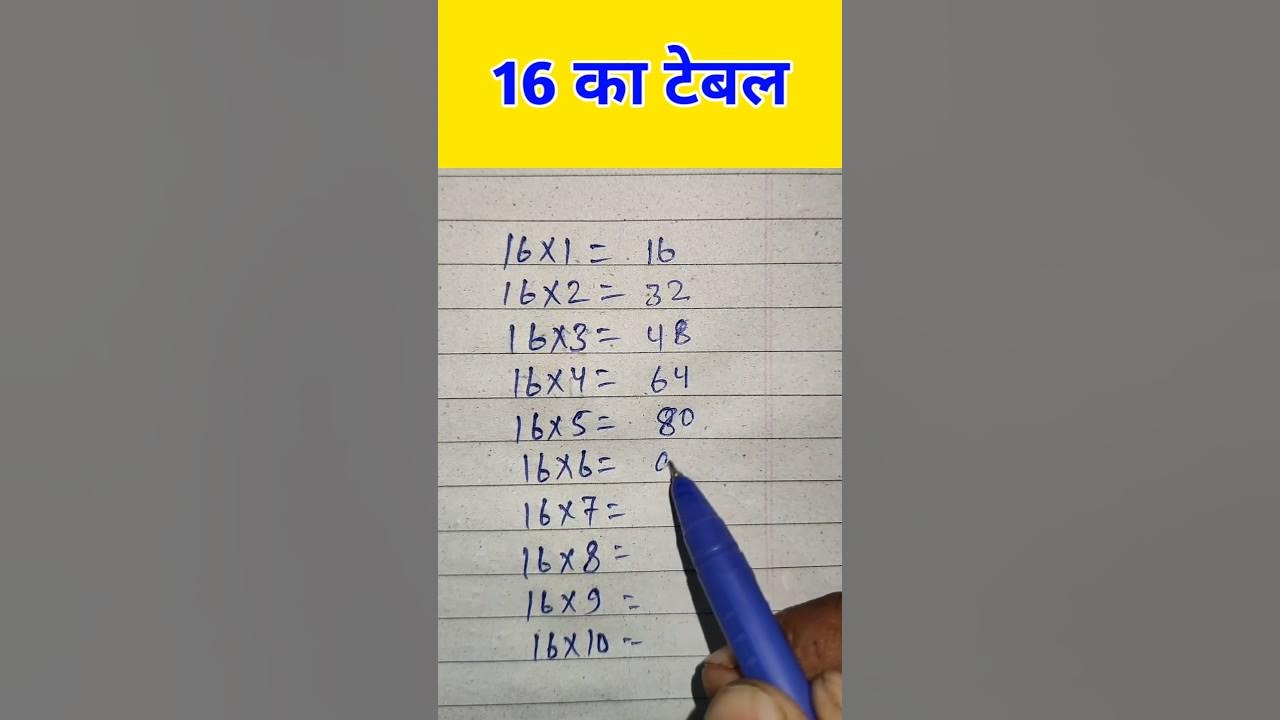 16 का टेबल
16×1 = 16
16×2 = 32
16×3 = 48
16×4 = 64
16×5 = 80
16×6 =
16×7 =
16×8 =
16×9 =
16×10 =